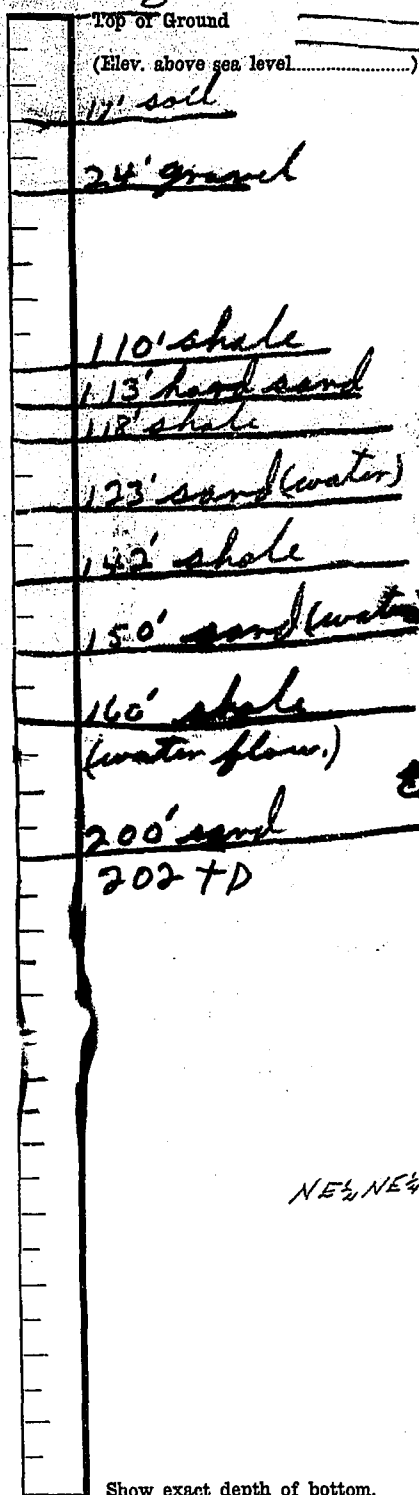 Top of Ground
(Elev. above sea level....................)
17' soil
24' gravel
110' shale
113' hard sand
118' shale
123' sand (water)
142' shale
150' sand (water
160' shale
(water flow.)
200' sand
202 TD
NE½ NE¼
Show exact depth of bottom.